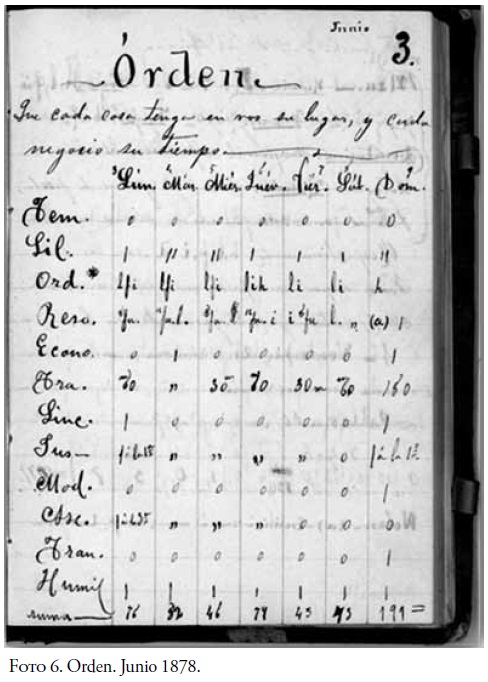 Junio
3.
Órden.
Que cada cosa tenga en vos su lugar, y cada
negocio su tiempo.
Lún. Már. Miér. Juév. Viér. Sáb. Dom.
Tem. 0 0 0 0 0 0 0
Sil. 1 11 11 1 1 1 11
Ord.* lfi lfi lfi lih li li h
Reso.
Econo. 0 1 0 0 0 0 1
Tra. 70 " 35 70 30 70 180
Sinc. 1 0 0 0 0 0 1
Jus " " " " 0
Mod. 0 0 0 0 0 0 1
Ase. " " " 0 0 0
Tran. 0 0 0 0 0 0 1
Humil 1 1 1 1 1 1 1
suma 76 32 46 78 45 191=
FOTO 6. Orden. Junio 1878.